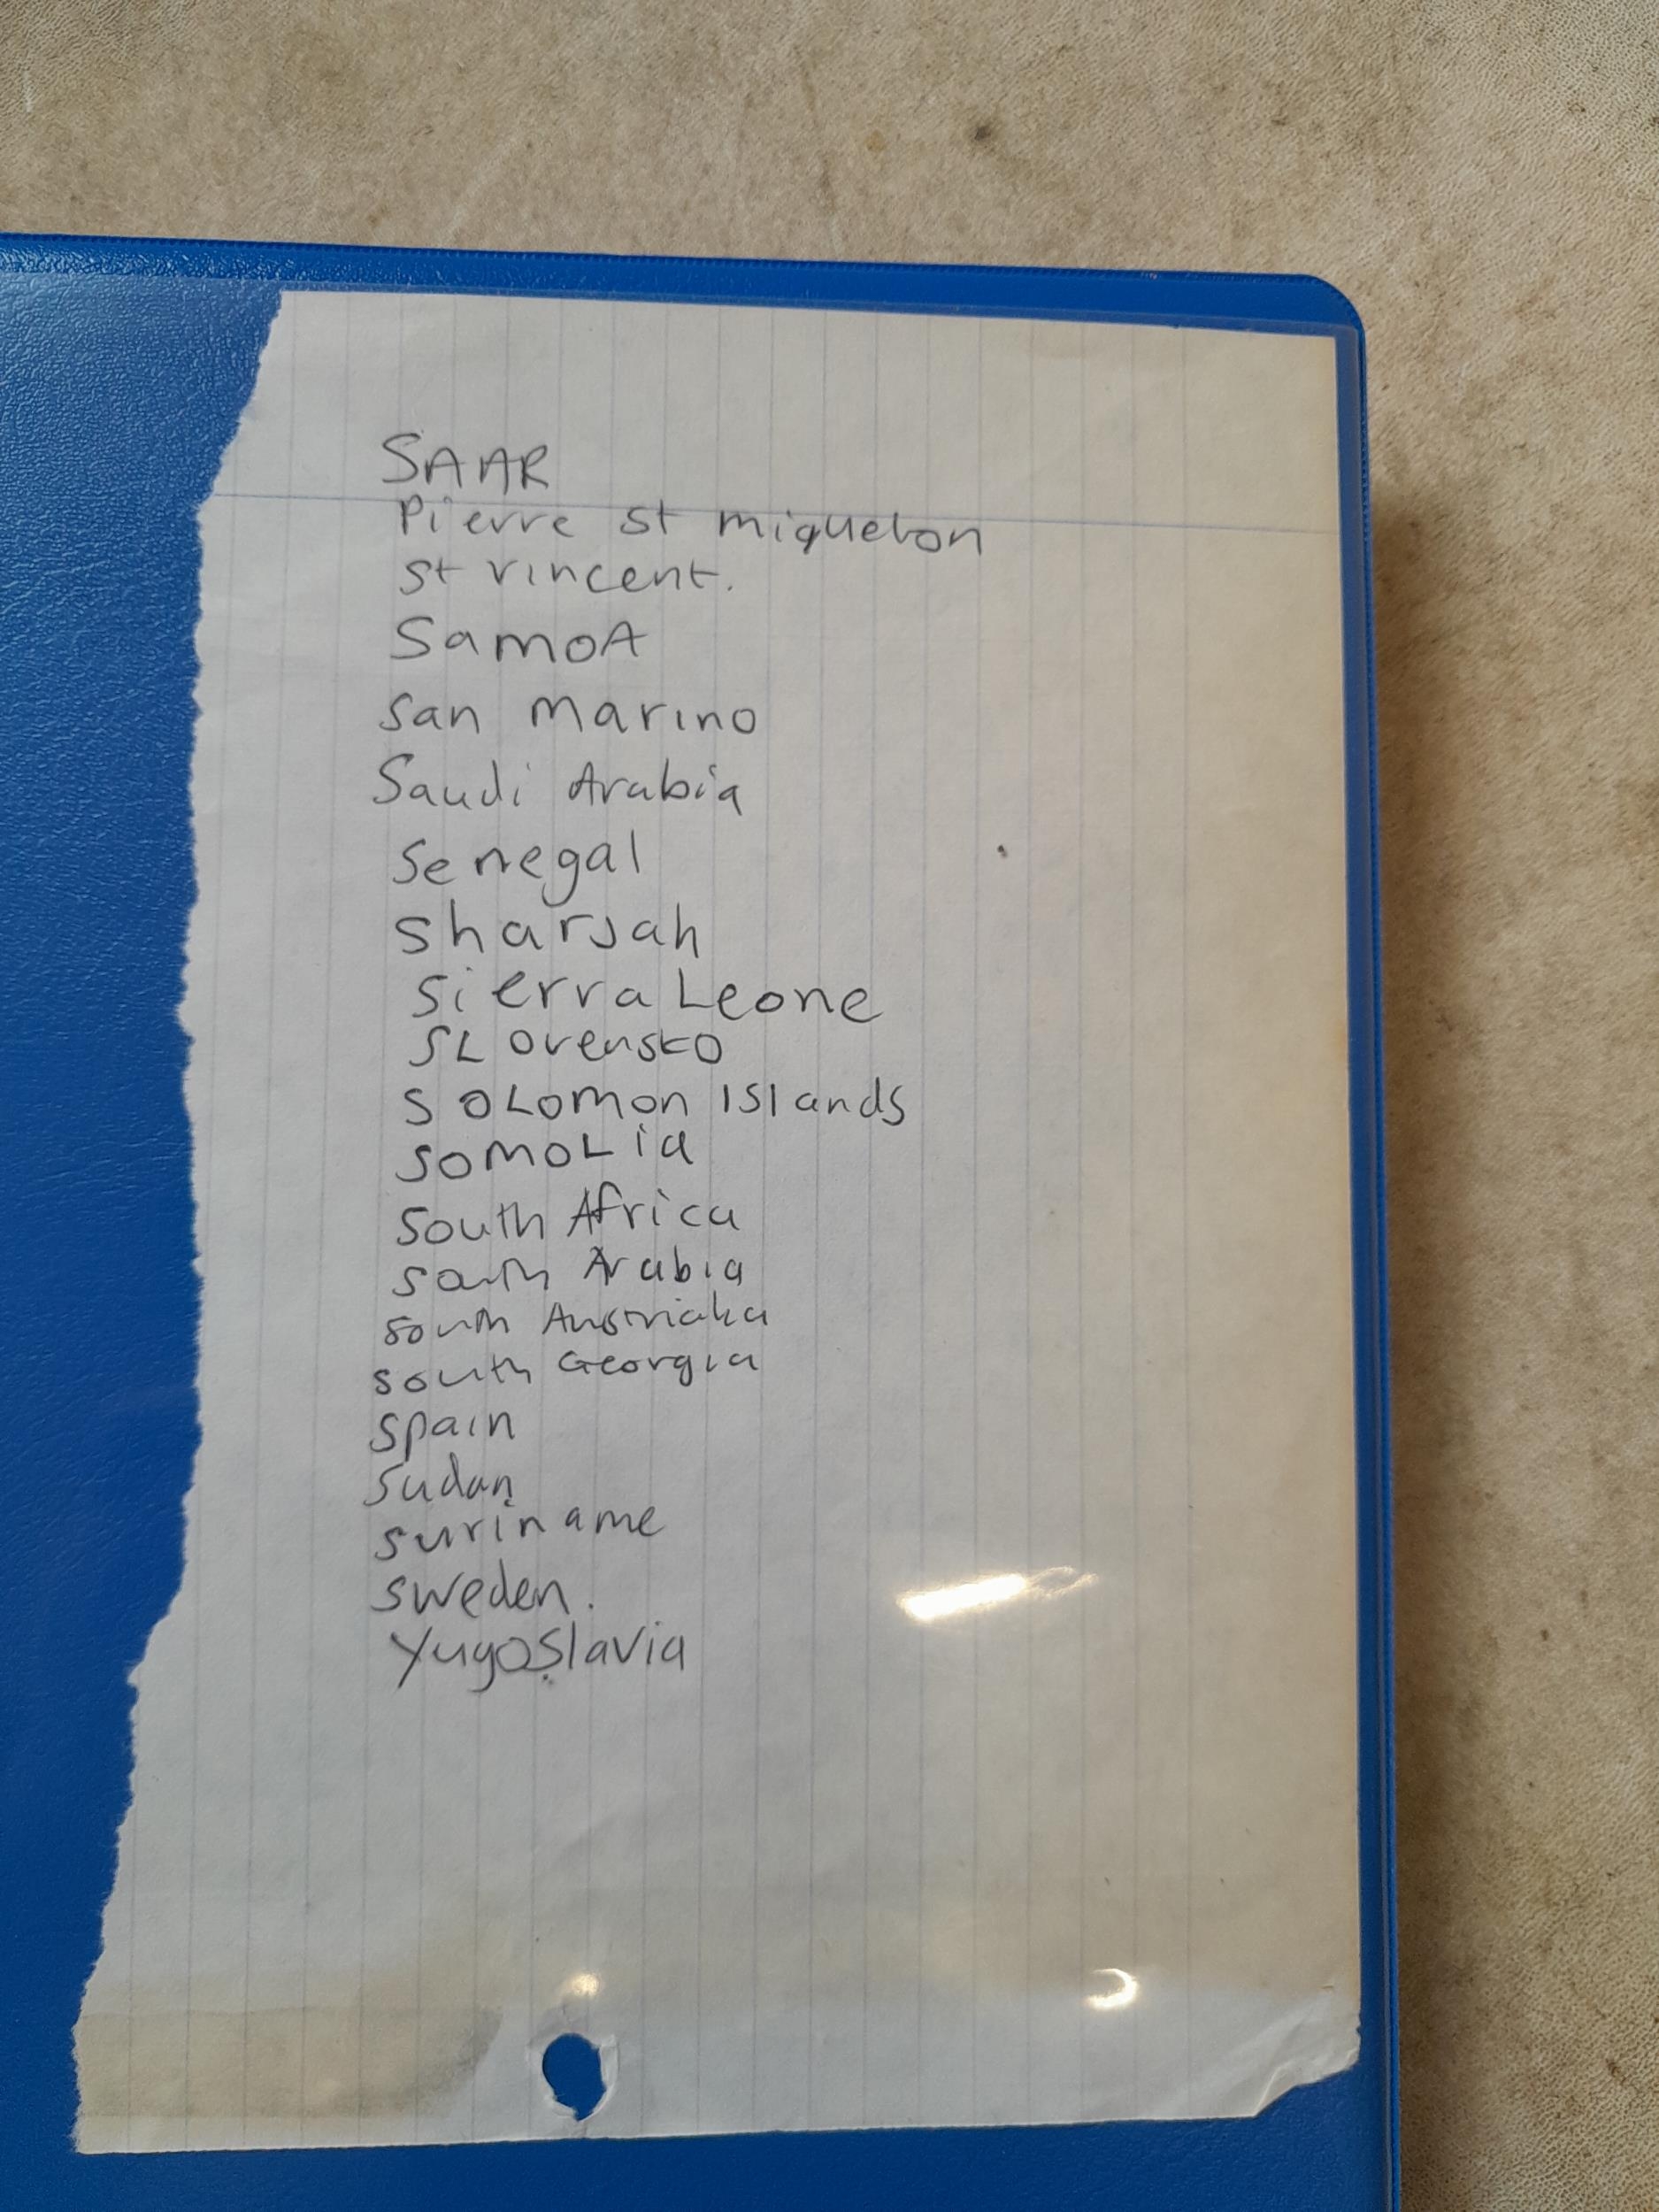 SAAR
Pierre St miquelon
St vincent.
SamoA
San Marino
Saudi Arabia
Senegal
SharJah
Sierra Leone
SLovensko
SOLomon Islands
SomoLia
South Africa
South Arabia
South
South Georgia
Spain
Sudan
Suriname
Sweden.
Yugoslavia